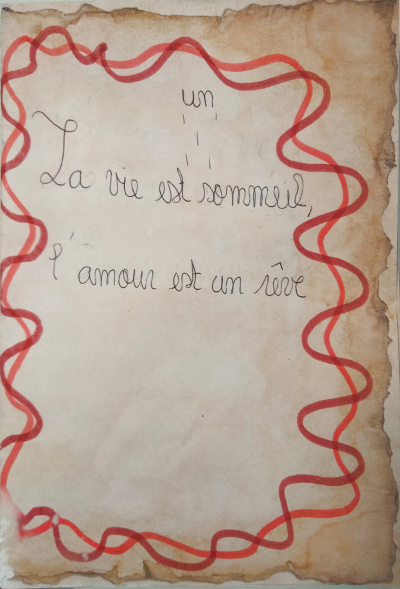 un
La vie est sommeil,
l'amour est un rêve